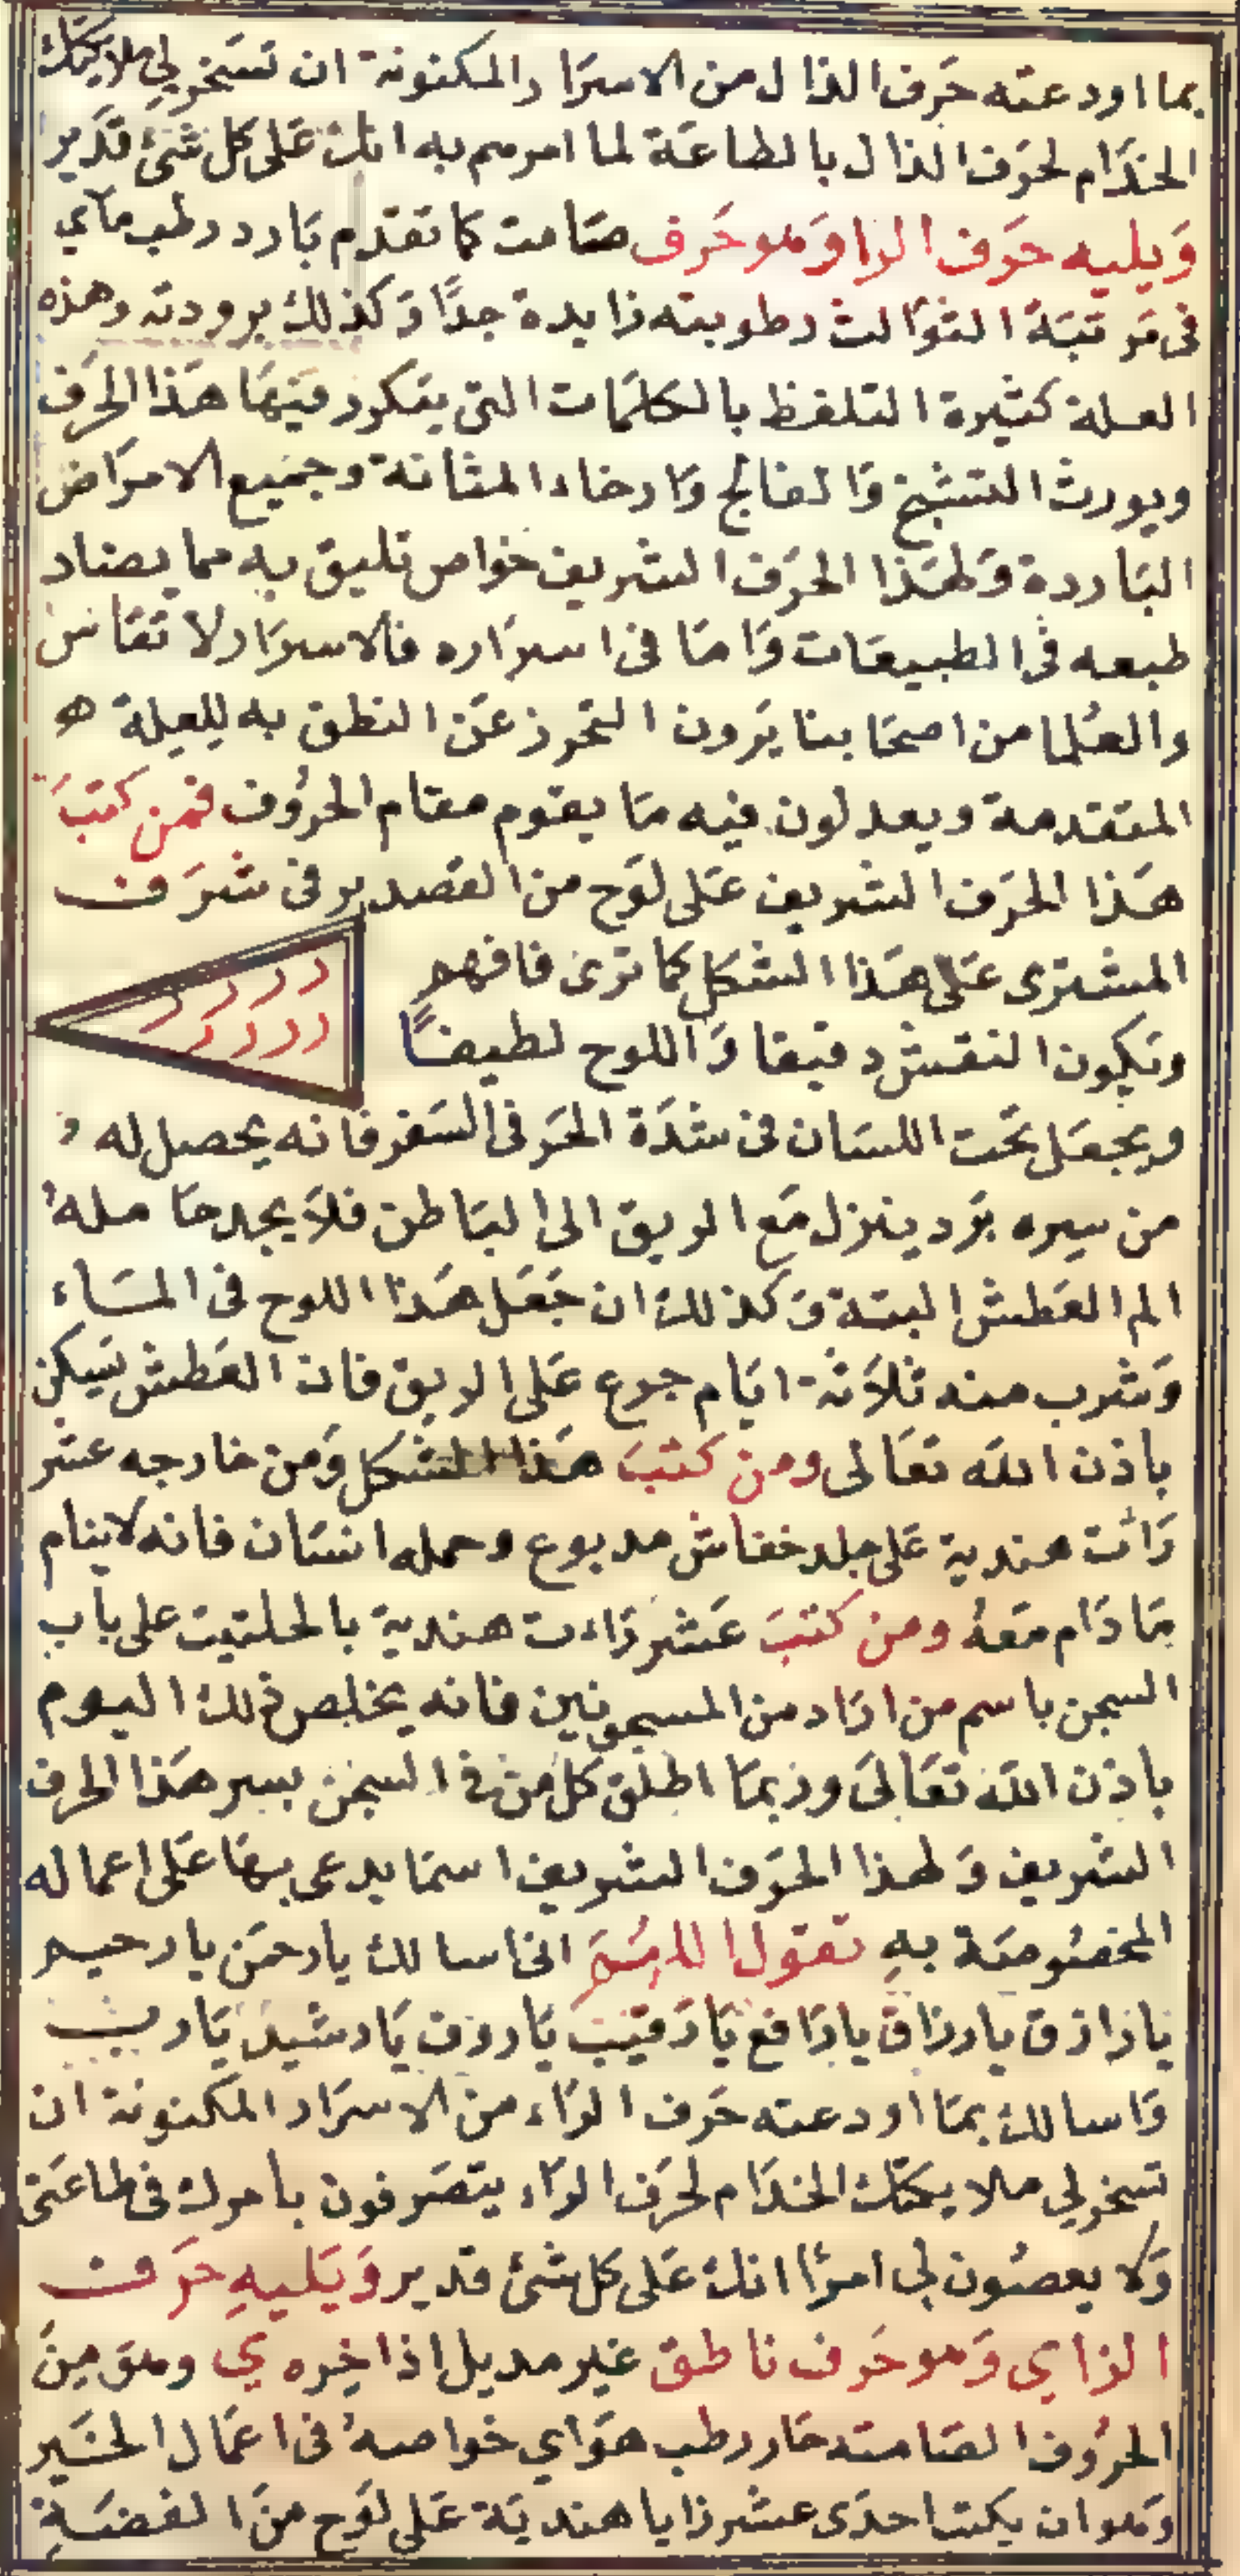 بما اودعته حَرف الذال من الاسرَار والمكنونة ان تسَخرلي ملايكتك
الخدَّام لحَرف الذال بالطاعَة لما امرهم به انك عَلى كل شئ قدَير
وَيليه حَرَف الرا وَهو حَرَف صَامت كما تقدّم بَارد رطب مَاي
فى مَرتبَة التوَالث رطوبته زايدة جدًّا وَكذلك برودته وهذه
العلة كثيرة التلفظ بالكلمَات التى يتكرر فيهَا هَذا الحَرف
ويورث التشبخ وَالفالج وَارخاء المثانة وجميع الامرَاض
البَاردة وَلهَذا الحَرَف الشريف خواص تليق به مما يضاد
طبعه فى الطبيعَات وَامَا فى اسرَاره فالاسرَار لا تقَاس
والعُلما من اصحَابنا يَرون التحرز عَن النطق به للعلة ه
المتقدمة ويعدلون فيه مَا يقوم مقام الحرُوف فمَن كتبَ
هَذا الحَرَف الشريف عَلى لوَح من القصدير فى شرَف
المشترى عَلى هَذا الشكل كما ترى فافهم
وتكون النقش دقيقا وَاللوح لطيفًا
ر ر ر ر
ر ر ر ر
ويجعَل تحَت اللسَان فى شدَة الحَر فى السَفر فانه يحصل له و
من سيره برَد ينزل مَع الريق الى البَاطن فلا يجد حَامله
الم العَطش البتة وَكذلك ان جَعَل هَذا اللوح فى المَاء
وَشرب منه ثلاثة ايَام جرع عَلى الريق فان العَطش يَسكن
باذن الله تعَالى ومن كتبَ هَذا الشكل وَمن خارجه عشر
رَاات هندية عَلى جلد خفاش مدبوع وحمله انسَان فانه لا ينام
مَا دَام مَعَهُ ومن كتبَ عَشر رَاءت هندية بالحلتيت على باب
السجن باسم من ارَاد من المسجونين فانه يخلص ذلك اليوم
باذن الله تعَالىَ وربمَا اطلق كل من فى السجن بسر هَذا الحرف
الشريف وَلهذا الحَرَف الشريف اسمَا يدعى بهَا عَلى اعماله
المخصُوصَة بهِ تقول اللهُمَّ انى اسالك يا رحمَن يا رحيم
يا رَازق يا رزاق يا رَافع يَا رَقيبَ يَا روف يَا رشيدَ يَا رب
وَاسالك بمَا اودعته حَرف الرَاء من الاسرَار المكنونة ان
تسخرلي ملايكتك الخدَام لحَرف الرَاء يتصَرفون بامرك فى طاعَتى
وَلا يعصُون لى امرًا انك عَلى كل شئ قدير وَيَليهِ حَرَف
الزاي وَهو حَرف ناطق غير مديل اذا خِره ي وهو مِنَ
الحرُوف الصَامته حَار رطب هوَاي خواصهُ فى اعمَال الخَير
وَهو ان يكتب احدَى عشر زايا هنديَة عَلى لوَح منَ الفضَةِ